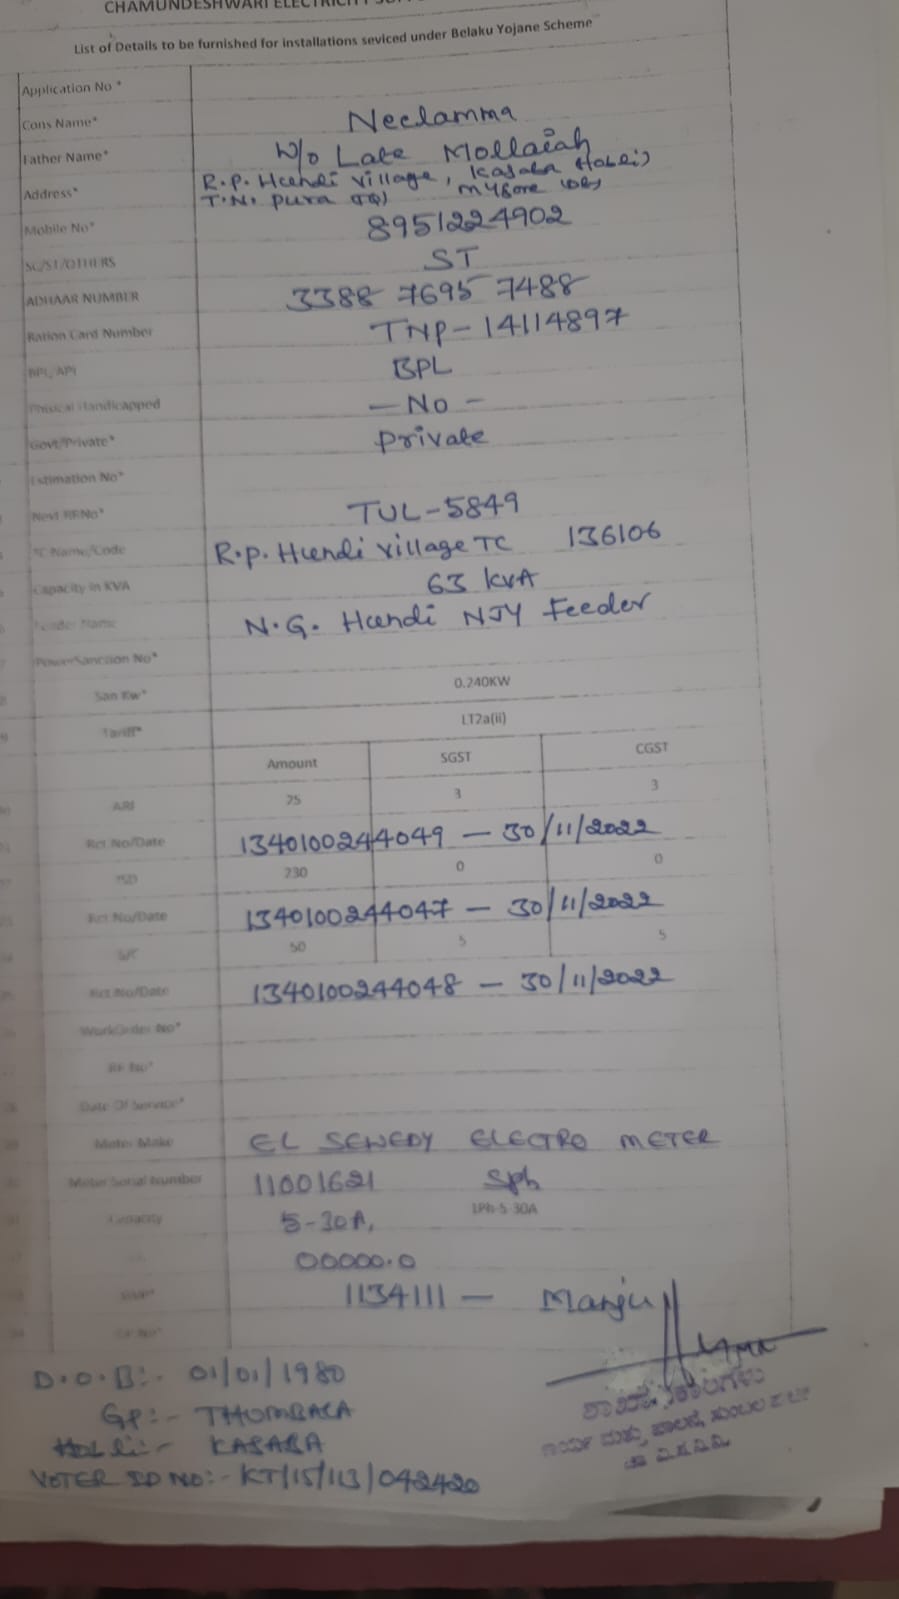 CHAMUNDESHWARI ELECTRICITY
List of Details to be furnished for installations seviced under Belaku Yojane Scheme
Application No *
Cons Name* Neelamma
Father Name* W/o Late Mollaiah
Address* R.P. Hundi village, Kasaba Hobli)
T.N. pura (TQ) Mysore (D)
Mobile No* 8951224902
SC/ST/OTHERS ST
ADHAAR NUMBER 3388 7695 7488
Ration Card Number TNP-14114897
BPL/APL BPL
Phisical Handicapped - No -
Govt/Private* Private
Estimation No*
Next RRNo* TUL-5849
TC Name/Code R.p. Hundi village TC 136106
Capacity in KVA 63 kvA
Feeder Name N.G. Hundi NJY Feeder
PowerSanction No*
San Kw* 0.240KW
Tariff* LT2a(ii)
Amount SGST CGST
ARF 75 3 3
Rct No/Date 1340100244049 - 30/11/2022
ISD 230 0 0
Rct No/Date 1340100244047 - 30/11/2022
50 5 5
Rct No/Date 1340100244048 - 30/11/2022
WorkOrder No*
RR No*
Date Of Service*
Meter Make EL SEWEDY ELECTRO METER
Meter Serial Number 11001621 Sph
Capacity 5-30A, 1Ph-5-30A
00000.0
1134111 - Manju
D.O.B:- 01/01/1980
GP:- THUMBALA
HOLli:- KASABA
VOTER ID NO:- KT/15/113/042420